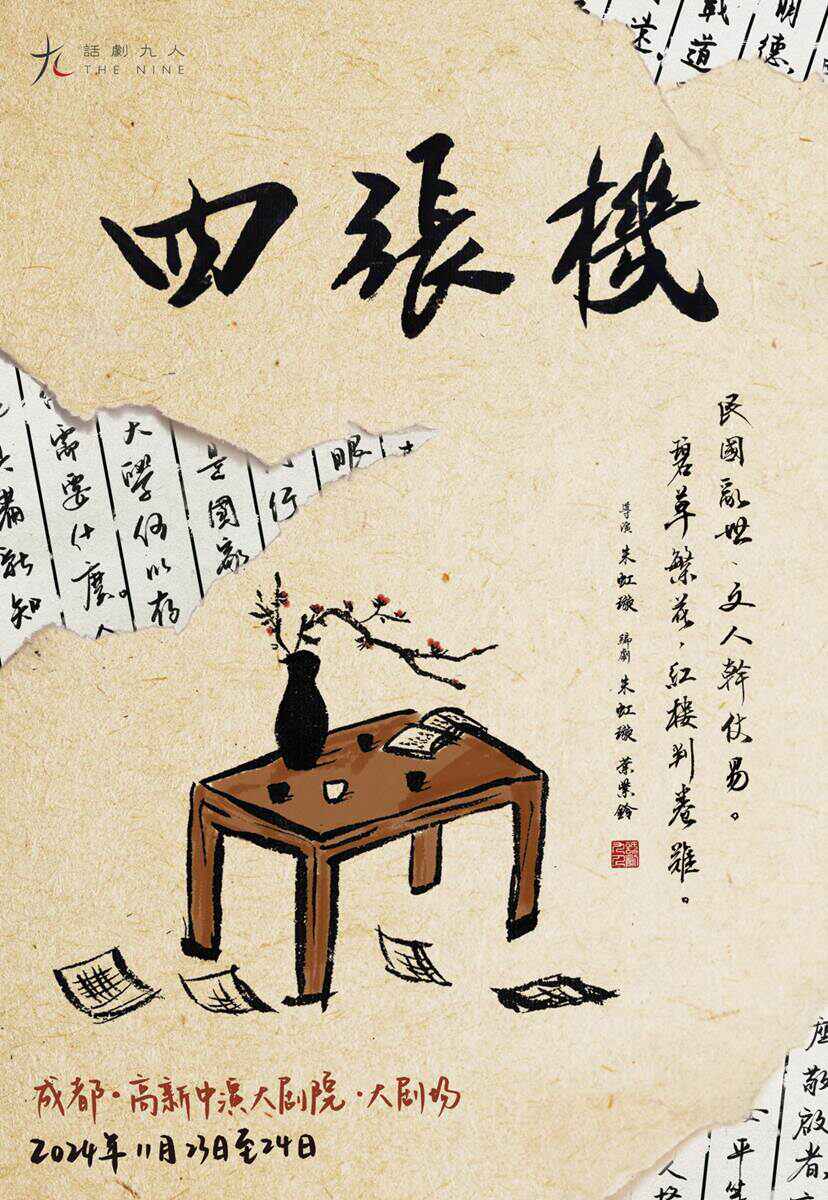 話劇九人
THE NINE
四張機
民國亂世，文人幹仗易。
碧草繁花，紅樓判卷難。
導演 朱虹璇 編劇 朱虹璇 葉紫鈴
戰道
明德
需要什麼。
大學何以存
是國家
行
眼
新知
成都·高新中演大剧院·大剧场
2024年11月23日至24日
座
敬啟者
平等
人格